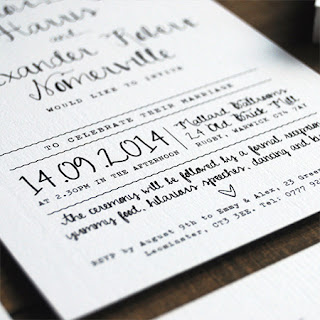 Harris
and
Alexander Robero
Somerville
WOULD LIKE TO INVITE
TO CELEBRATE THEIR MARRIAGE
14.09.2014
AT 2.30PM IN THE AFTERNOON
Mallard Ballrooms
24 Old Brick Mill
RUGBY, WARWICK CV7 7AY
the ceremony will be followed by a formal reception
yummy food, hilarious speeches, dancing and
RSVP by August 9th to Emmy & Alex, 23 Green
Leominster, CT3 3EE. Tel: 0777
or 0777 92